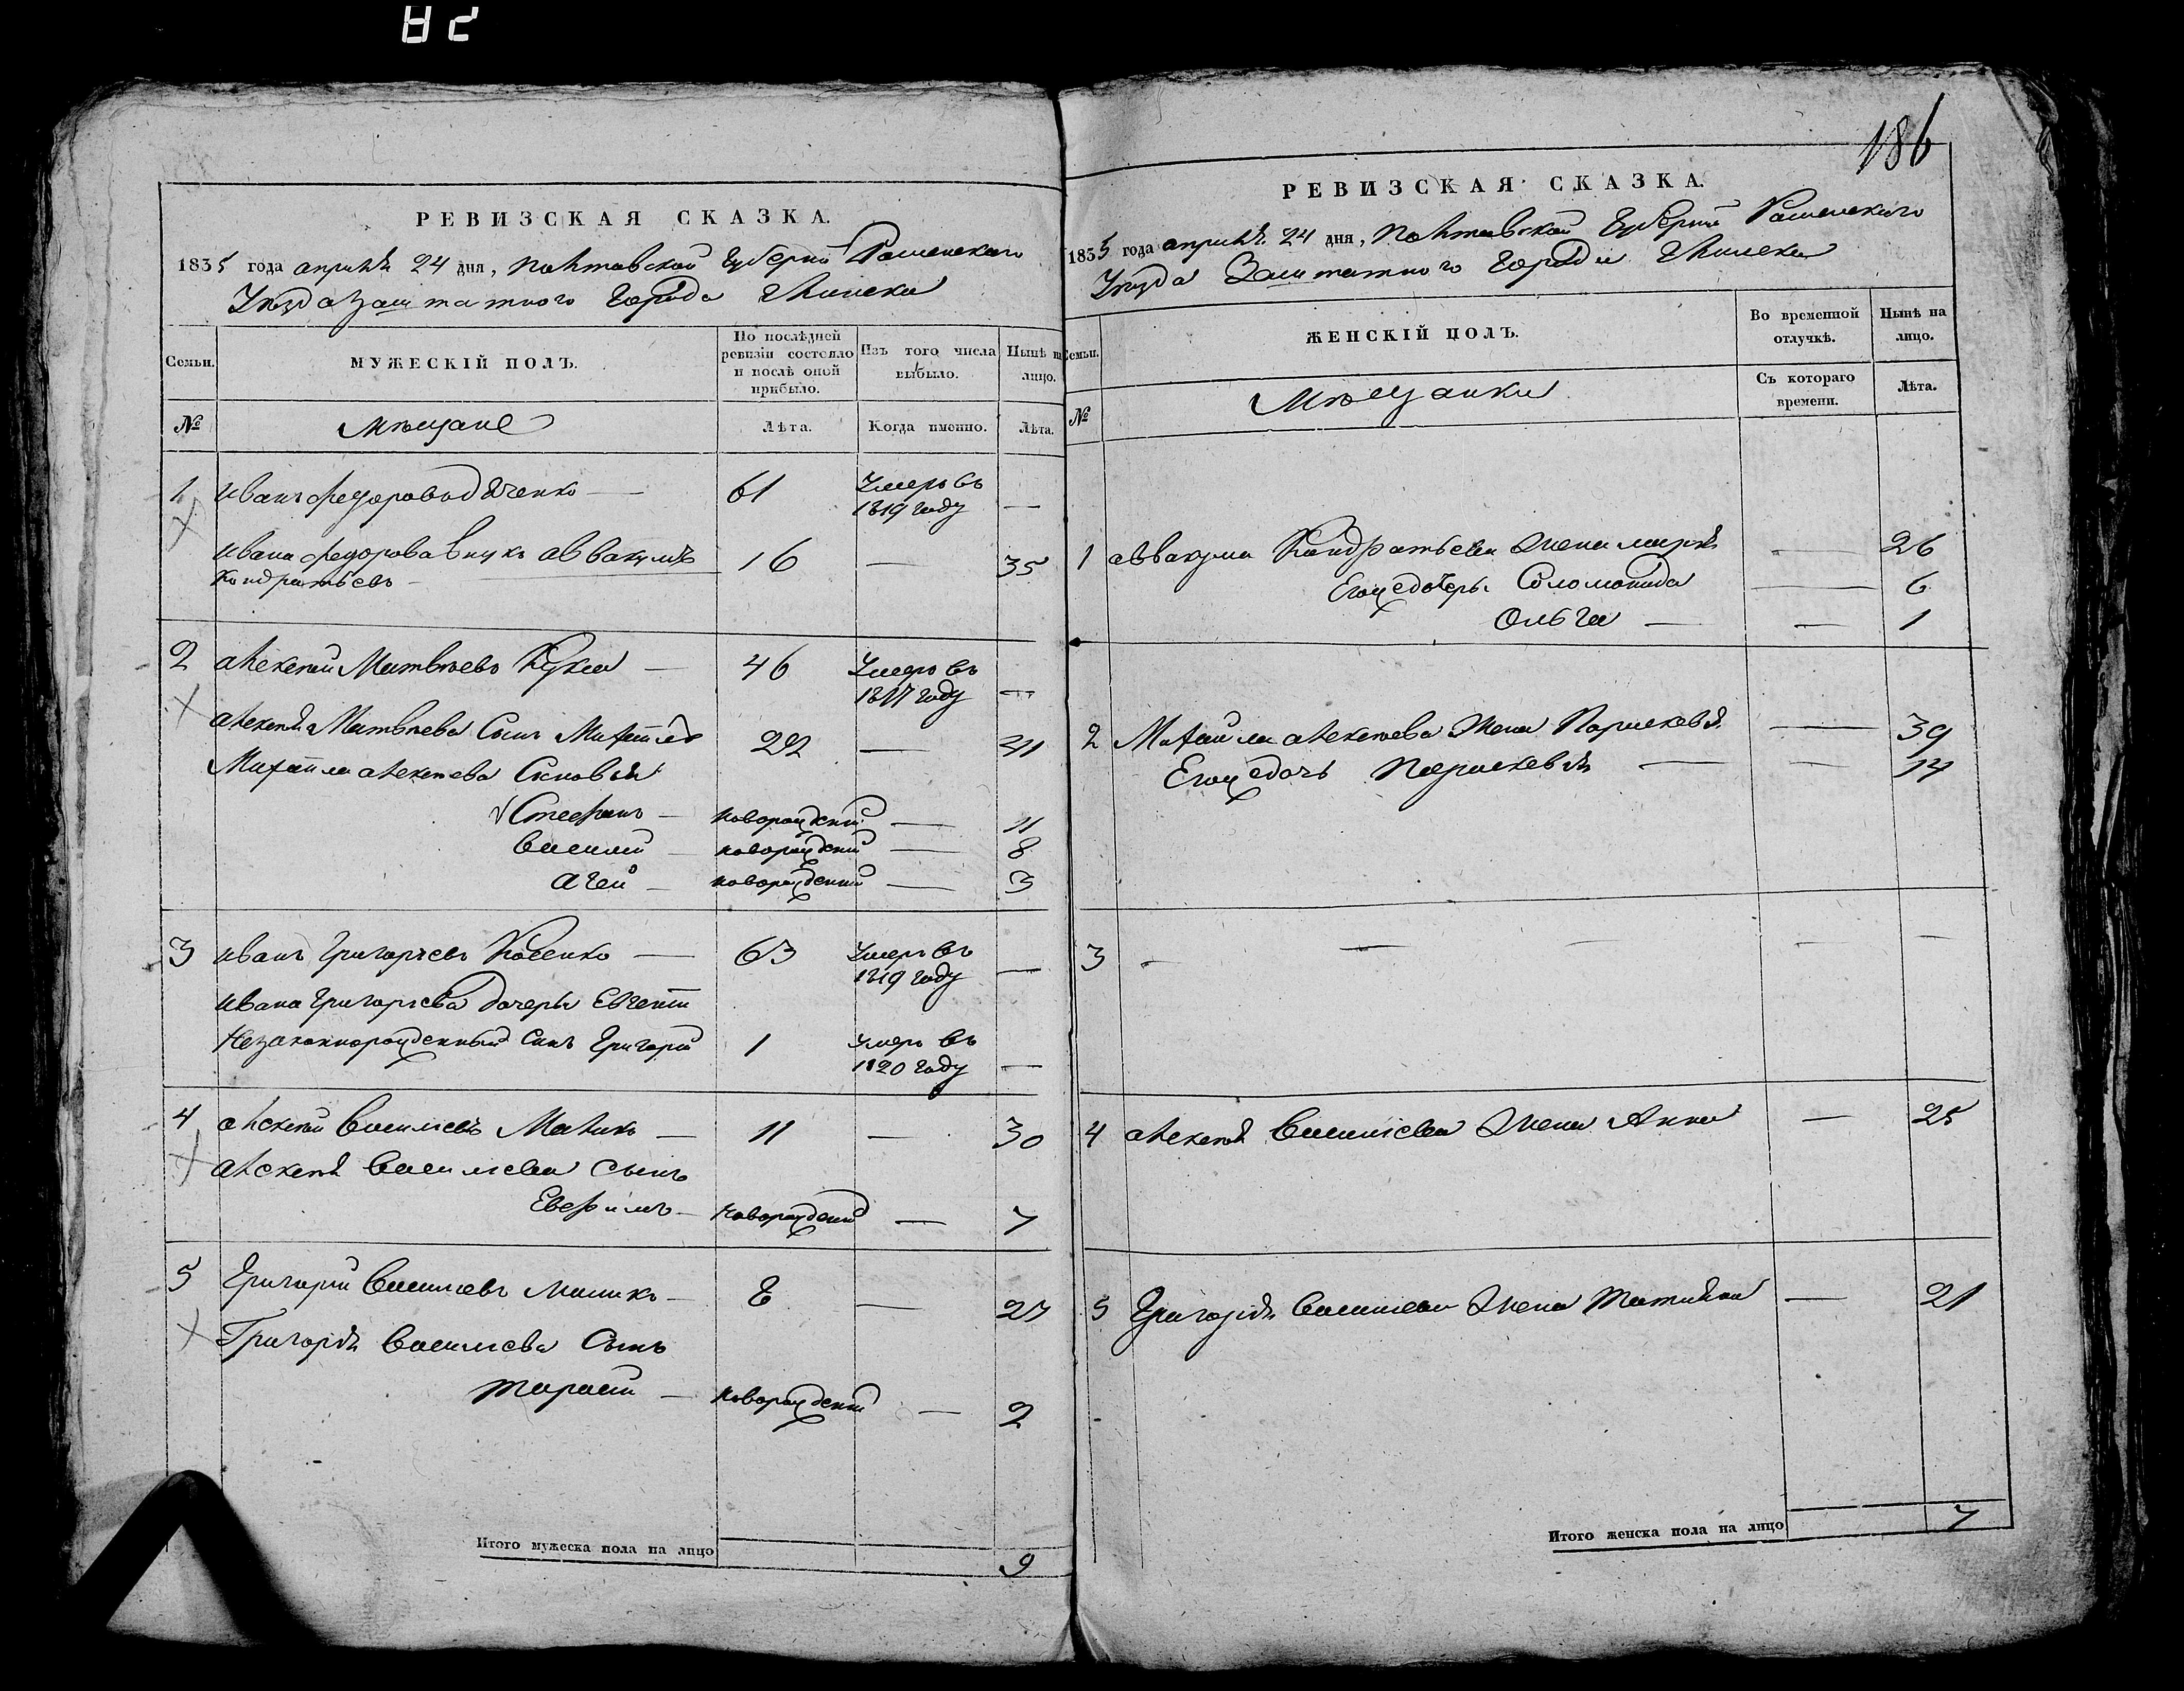 82
186
РЕВИЗСКАЯ СКАЗКА.
1835 года апрѣля 24 дня, Полтавской Губерніи Роменского
Уѣзда Заштатного Города Глинска
Семьи.
МУЖЕСКІЙ ПОЛЪ.
По послѣдней ревизіи состояло и послѣ оной прибыло.
Изъ того числа выбыло.
Нынѣ на лицо.
№
Мѣщане
Лѣта.
Когда именно.
Лѣта.
1 Иванъ Федоровъ — 61 Умеръ въ 1819 году —
Ивана Федорова Внукъ Аввакумъ Кондратьевъ — 16 — 35
2 Алексѣй Матвѣевъ Кукса — 46 Умеръ въ 1817 году —
Алексѣя Матвѣева Сынъ Михайло 22 — 41
Михайла Алексѣева Сыновья
Стефанъ — новорожденный — 11
Василий — новорожденный — 8
Агей — новорожденный — 3
3 Иванъ Григорьевъ — 63 Умеръ въ 1819 году —
Ивана Григорьева дочери Евгении
Незаконнорожденный Сынъ Григорій 1 умеръ въ 1820 году —
4 Алексѣй Василіевъ Маликъ — 11 — 30
Алексѣя Василіева Сынъ
Евфимъ — новорожденный — 7
5 Григорій Василіевъ Маликъ — 8 — 27
Григорія Василіева Сынъ
Тарасій — новорожденный — 2
Итого мужеска пола на лицо 9
РЕВИЗСКАЯ СКАЗКА.
1835 года апрѣля 24 дня, Полтавской Губерніи Роменского
Уѣзда Заштатного Города Глинска
Семьи.
ЖЕНСКІЙ ПОЛЪ.
Во временной отлучкѣ.
Нынѣ на лицо.
№
Мѣщанки
Съ котораго времени.
Лѣта.
1 Аввакума Кондратьева Жена Марія — 26
Егожедочери Соломонида — 6
Ольга — — 1
2 Михайла Алексѣева Жена Параскевія — 39
Егожедочь Параскевія — — 14
3 — — — — —
4 Алексѣя Василіева Жена Анна — 25
5 Григорія Василіева Жена Татіяна — 21
Итого женска пола на лицо 7